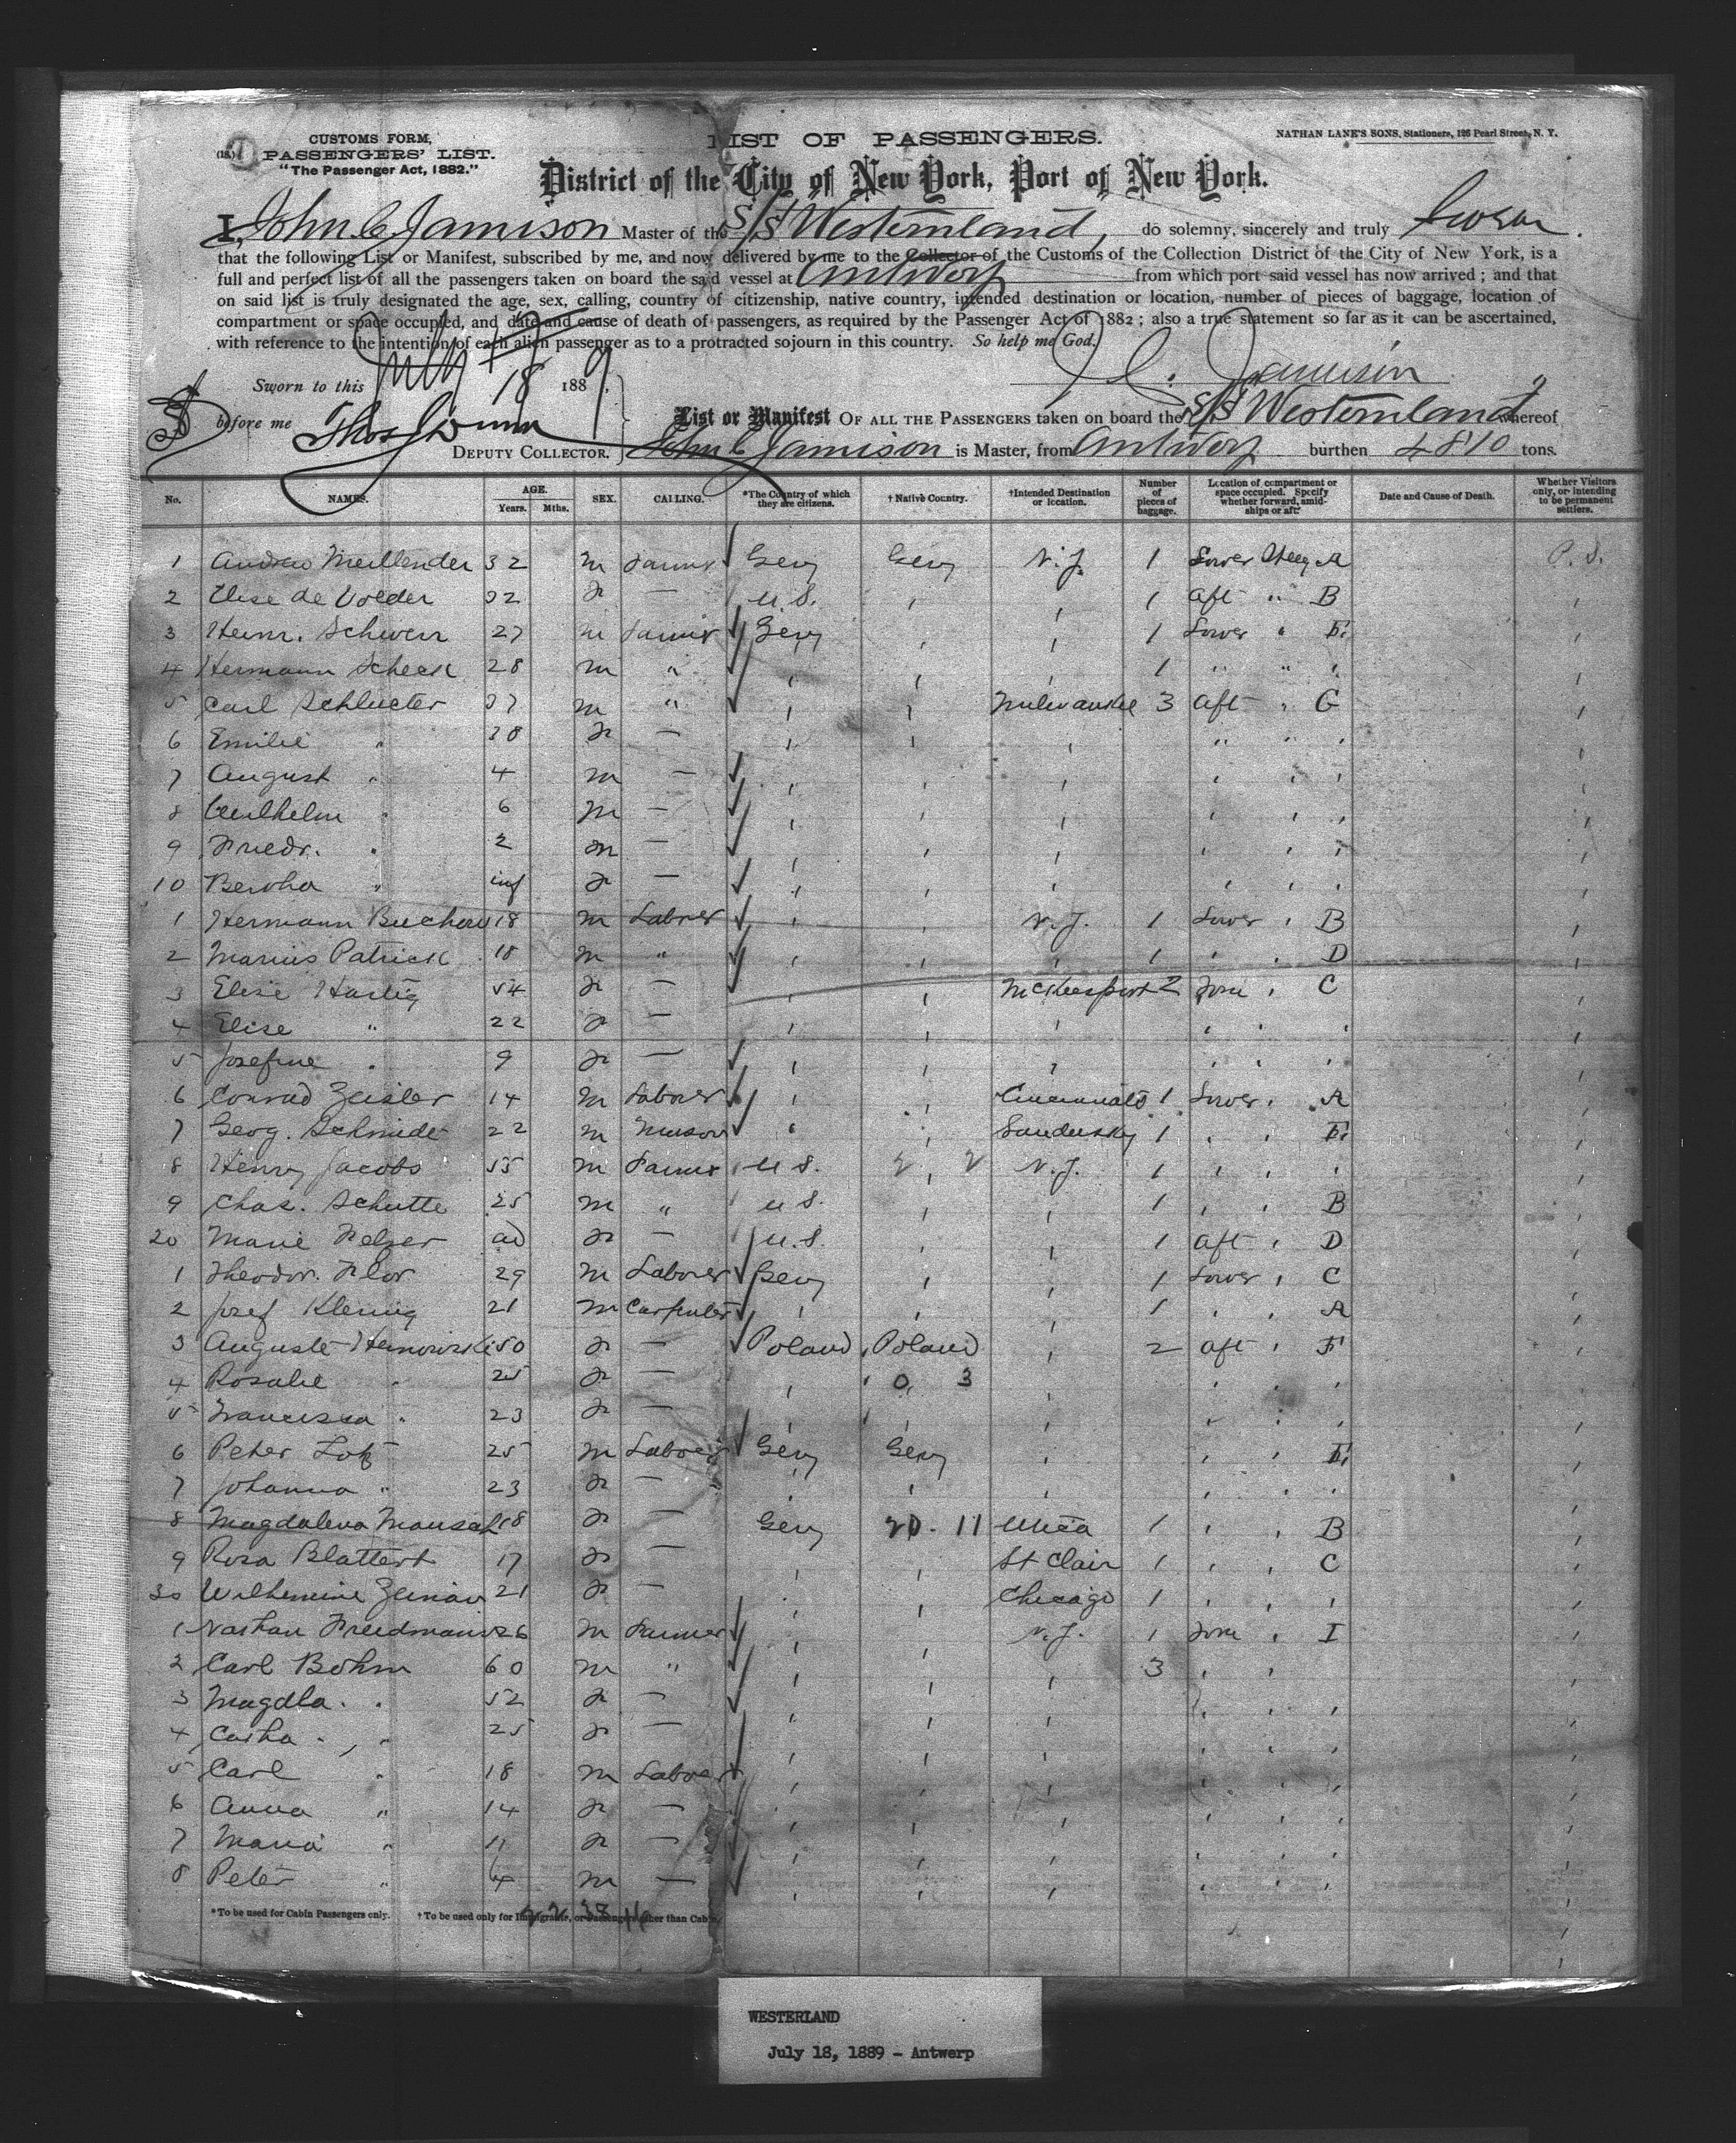 CUSTOMS FORM,
PASSENGERS' LIST.
"The Passenger Act, 1882."
LIST OF PASSENGERS.
NATHAN LANE'S SONS, Stationers, 126 Pearl Street, N. Y.
District of the City of New York, Port of New York.
I, John C. Jamison Master of the S/S Westernland, do solemny, sincerely and truly swear.
that the following List or Manifest, subscribed by me, and now delivered by me to the Collector of the Customs of the Collection District of the City of New York, is a
full and perfect list of all the passengers taken on board the said vessel at Antwerp from which port said vessel has now arrived; and that
on said list is truly designated the age, sex, calling, country of citizenship, native country, intended destination or location, number of pieces of baggage, location of
compartment or space occupied, and date and cause of death of passengers, as required by the Passenger Act of 1882; also a true statement so far as it can be ascertained,
with reference to the intention of each alien passenger as to a protracted sojourn in this country. So help me God.
J C. Jamison
Sworn to this July 18 1889.
before me
DEPUTY COLLECTOR.
List or Manifest OF ALL THE PASSENGERS taken on board the S/S Westernland whereof
John C Jamison is Master, from Antwerp burthen 4810 tons.
No. NAMES. AGE. Years. Mths. SEX. CALLING. *The Country of which they are citizens. †Native Country. †Intended Destination or location. Number of pieces of baggage. Location of compartment or space occupied. Specify whether forward, amidships or aft. Date and Cause of Death. Whether Visitors only, or intending to be permanent settlers.
1 Andrew 32 m Farmer Gery Gery N.J. 1 Lower Steeg A P.S.
2 Elise de Volder 32 f — U.S. 1 aft " B
3 Heinr. Schwerr 27 m Farmer Gery 1 Lower " E
4 Hermann Scheck 28 m " 1 " "
5 Carl Schlueter 37 m " Milwaukee 3 aft G
6 Emilie " 38 f —
7 August " 4 m —
8 Wilhelm " 6 m —
9 Friedr. " 2 m —
10 Bertha " inf f —
1 Hermann Buchow 18 m Laborer N.J. 1 Lower B
2 Marius Patrick 18 m " 1 D
3 Elise Hartig 54 f — McKeesport 2 Forw C
4 Elise " 22 f —
5 Josefine " 9 f —
6 Conrad Zeisler 14 m Laborer Cincinnati 1 Lower A
7 Georg. Schmidt 22 m Mason Sandusky 1 E
8 Henry Jacobs 55 m Farmer U S. N.J. 1
9 Chas. Schutte 25 m " U S. 1 B
20 Marie Felzer ad f — U.S. 1 aft D
1 Theodor. Flor 29 m Laborer Gery 1 Lower C
2 Josef 21 m Carpenter 1 A
3 Auguste 50 f — Poland Poland 2 aft F
4 Rosalie " 25 f — 0 3
5 Francisca " 23 f —
6 Peter Lotz 25 m Laborer Gery Gery E
7 Johanna " 23 f —
8 Magdalena 18 f — Gery 20 - 11 Utica 1 B
9 Rosa Blattert 17 f — St Clair 1 C
30 Wilhemine 21 f — Chicago 1
1 Nathan Friedmann 26 m Farmer N.J. 1 Forw I
2 Carl Bohm 60 m " 3
3 Magdla. " 52 f —
4 Catha. " 25 f —
5 Carl " 18 m Laborer
6 Anna " 14 f —
7 Maria " 11 f —
8 Peter " 4 m —
*To be used for Cabin Passengers only. †To be used only for Immigrants, or Passengers other than Cabin.
WESTERLAND
July 18, 1889 - Antwerp